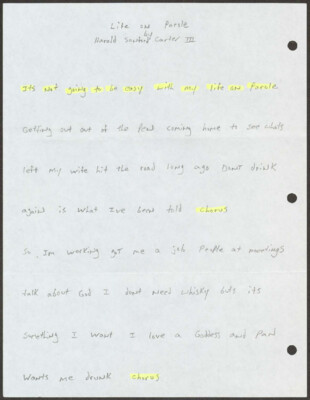 Life on Parole
by
Harold Sanford Carter III
Its not going to be easy with my life on Parole
Getting out out of the Pend coming home to see whats
left my wife hit the road long ago Dont drink
again is what I've been told chorus
So Im working got me a job People at meetings
talk about God I dont need whisky buts its
Something I want I love a Goddess and Pard
wants me drunk chorus